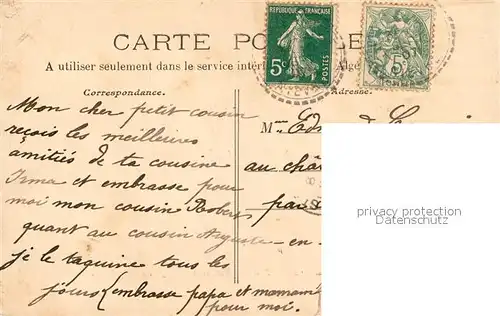 RÉPUBLIQUE FRANÇAISE
5c POSTES
5c
CARTE PO LE
A utiliser seulement dans le service intéri Algé
Correspondance.
Adresse.
Mon cher petit cousin
reçois les meilleures
amitiés de ta cousine
Irma et embrasse pour
moi mon cousin Robert
quant au cousin Auguste - en -
je le taquine tous les
jours (embrasse papa et maman
pour moi.
M
au châ
par
privacy protection
Datenschutz